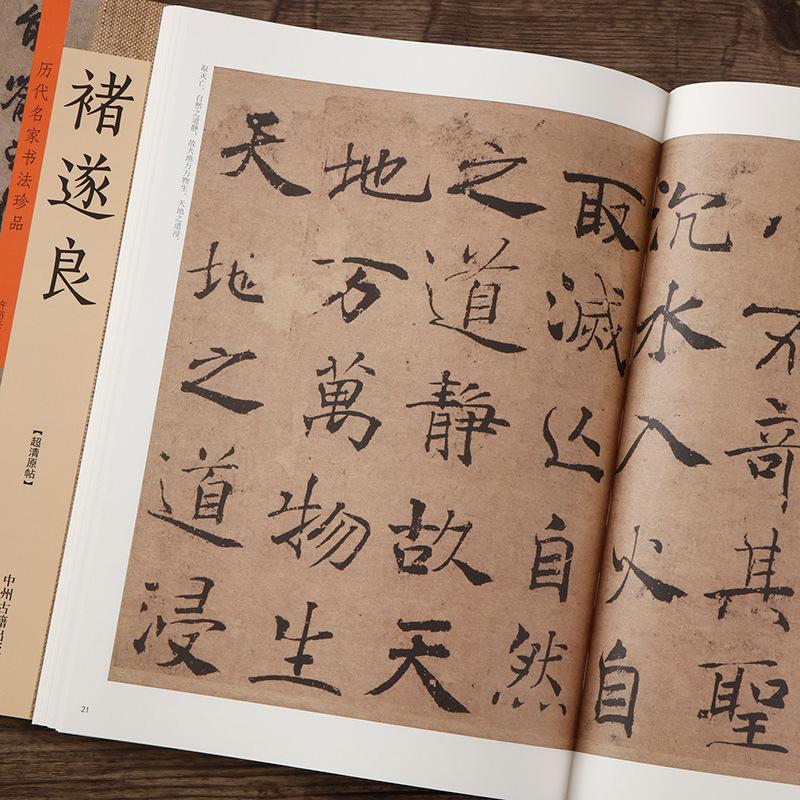 历代名家书法珍品
褚遂良
【超清原帖】
中州古籍出
不奇其聖
沉水入火自
取滅亾自然
之道静故天
地万萬物生
天地之道浸
取灭亡。自然之道静，故天地万万物生。天地之道浸，
21